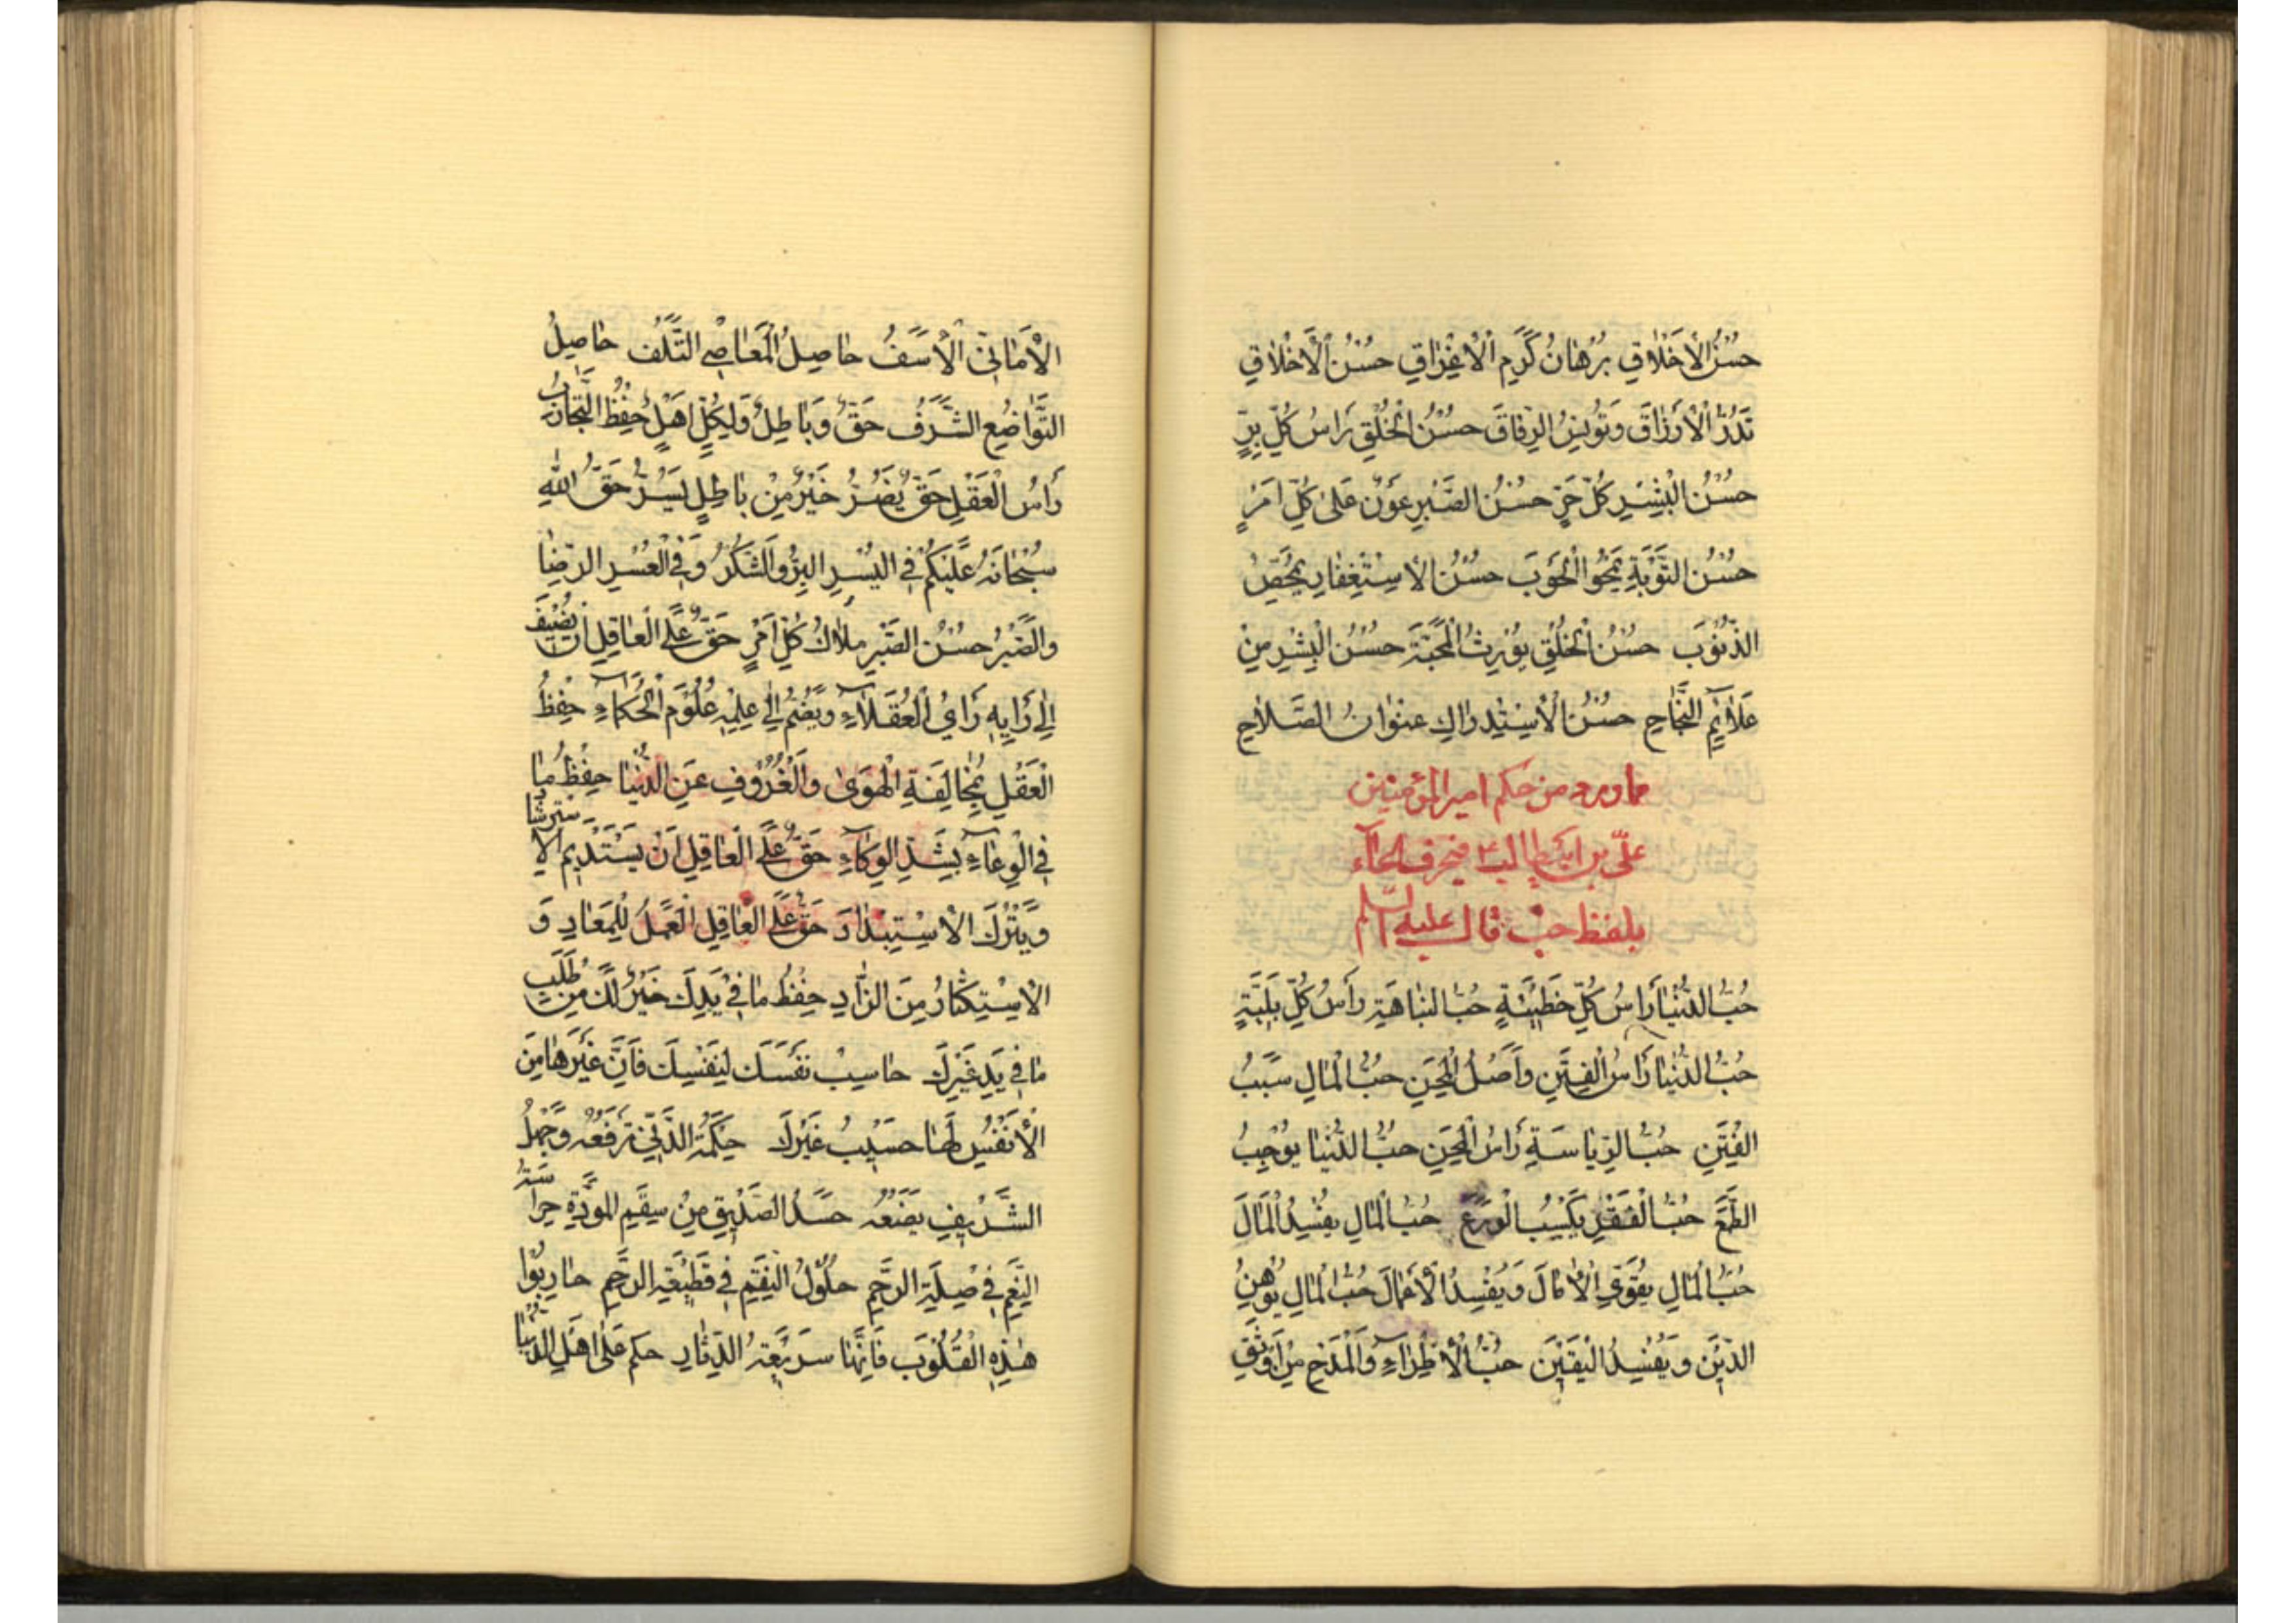 حُسْنُ الْأَخْلَاقِ بُرْهَانُ كَرَمِ الْأَعْرَاقِ حُسْنُ الْأَخْلَاقِ
تَدُرُّ الْأَرْزَاقَ وَتُونِسُ الرِّفَاقَ حُسْنُ الْخُلْقِ رَأْسُ كُلِّ بِرٍّ
حُسْنُ الْبِشْرِ كُلِّ حُرٍّ حُسْنُ الصَّبْرِ عَوْنٌ عَلَى كُلِّ أَمْرٍ
حُسْنُ التَّوْبَةِ يَمْحُو الْحَوْبَ حُسْنُ الْاسْتِغْفَارِ يُمَحِّصُ
الذُّنُوبَ حُسْنُ الْخُلُقِ يُورِثُ الْمَحَبَّةَ حُسْنُ الْبِشْرِ مِنْ
عَلَائِمِ النَّجَاحِ حُسْنُ الْاسْتِدْرَاكِ عُنْوَانُ الصَّلَاحِ
مما ورد من حكم امير المؤمنين
علىّ بن ابيطالب ع فى حرف الحاء
بلفظ حبّ قال عليه السّلم
حُبُّ الدُّنْيَا رَأْسُ كُلِّ خَطِيئَةٍ حُبُّ النَّبَاهَةِ رَأْسُ كُلِّ بَلِيَّةٍ
حُبُّ الدُّنْيَا رَأْسُ الْفِتَنِ وَأَصْلُ الْمِحَنِ حُبُّ الْمَالِ سَبَبُ
الْفِتَنِ حُبُّ الرِّيَاسَةِ رَأْسُ الْمِحَنِ حُبُّ الدُّنْيَا يُوجِبُ
الطَّمَعَ حُبُّ الْفَقْرِ يَكْسِبُ الْوَرَعَ حُبُّ الْمَالِ يُفْسِدُ الْمَالَ
حُبُّ الْمَالِ يُقَوِّي الْآمَالَ وَيُفْسِدُ الْأَعْمَالَ حُبُّ الْمَالِ يُوهِنُ
الدِّينَ وَيُفْسِدُ الْيَقِينَ حُبُّ الْإِطْرَاءِ وَالْمَدْحِ مِنْ أَوْثَقِ
الْأَمَانِيِّ الْأَسَفُ حَاصِلُ الْمَعَاصِي التَّلَفُ حَاصِلُ
التَّوَاضُعِ الشَّرَفُ حَقٌّ وَبَاطِلٌ وَلِكُلٍّ أَهْلٌ حِفْظُ التَّجَارِبِ
رَأْسُ الْعَقْلِ حَقٌّ يَضُرُّ خَيْرٌ مِنْ بَاطِلٍ يَسُرُّ حَقُّ اللَّهِ
سُبْحَانَهُ عَلَيْكُمْ فِي الْيُسْرِ الْبِرُّ وَالشُّكْرُ وَفِي الْعُسْرِ الرِّضَا
وَالصَّبْرُ حُسْنُ الصَّبْرِ مِلَاكُ كُلِّ أَمْرٍ حَقٌّ عَلَى الْعَاقِلِ أَنْ يُضِيفَ
إِلَى رَأْيِهِ رَأْيَ الْعُقَلَاءِ وَيَضُمَّ إِلَى عِلْمِهِ عُلُومَ الْحُكَمَاءِ حِفْظُ
الْعَقْلِ بِمُخَالَفَةِ الْهَوَى وَالْعُزُوفِ عَنِ الدُّنْيَا حِفْظُ مَا
فِي الْوِعَاءِ بِشَدِّ الْوِكَاءِ حَقٌّ عَلَى الْعَاقِلِ أَنْ يَسْتَدِيمَ الْاسترشاد
وَيَتْرُكَ الْاسْتِبْدَادَ حَقٌّ عَلَى الْعَاقِلِ الْعَمَلُ لِلْمَعَادِ وَ
الْاسْتِكْثَارُ مِنَ الزَّادِ حِفْظُ مَا فِي يَدِكَ خَيْرٌ لَكَ مِنْ طَلَبِ
مَا فِي يَدِ غَيْرِكَ حَاسِبْ نَفْسَكَ لِنَفْسِكَ فَإِنَّ غَيْرَهَا مِنَ
الْأَنْفُسِ لَهَا حَسِيبٌ غَيْرُكَ حِكْمَةُ الدَّنِيِّ تَرْفَعُهُ وَجَهْلُ
الشَّرِيفِ يَضَعُهُ حَسَدُ الصَّدِيقِ مِنْ سُقْمِ الْمَوَدَّةِ حِرَاسَةُ
النِّعَمِ فِي صِلَةِ الرَّحِمِ حُلُولُ النِّقَمِ فِي قَطِيعَةِ الرَّحِمِ حَارِبُوا
هٰذِهِ الْقُلُوبَ فَإِنَّهَا سَرِيعَةُ الدِّثَارِ حكم عَلَى اهْلِ الدُّنْيَا